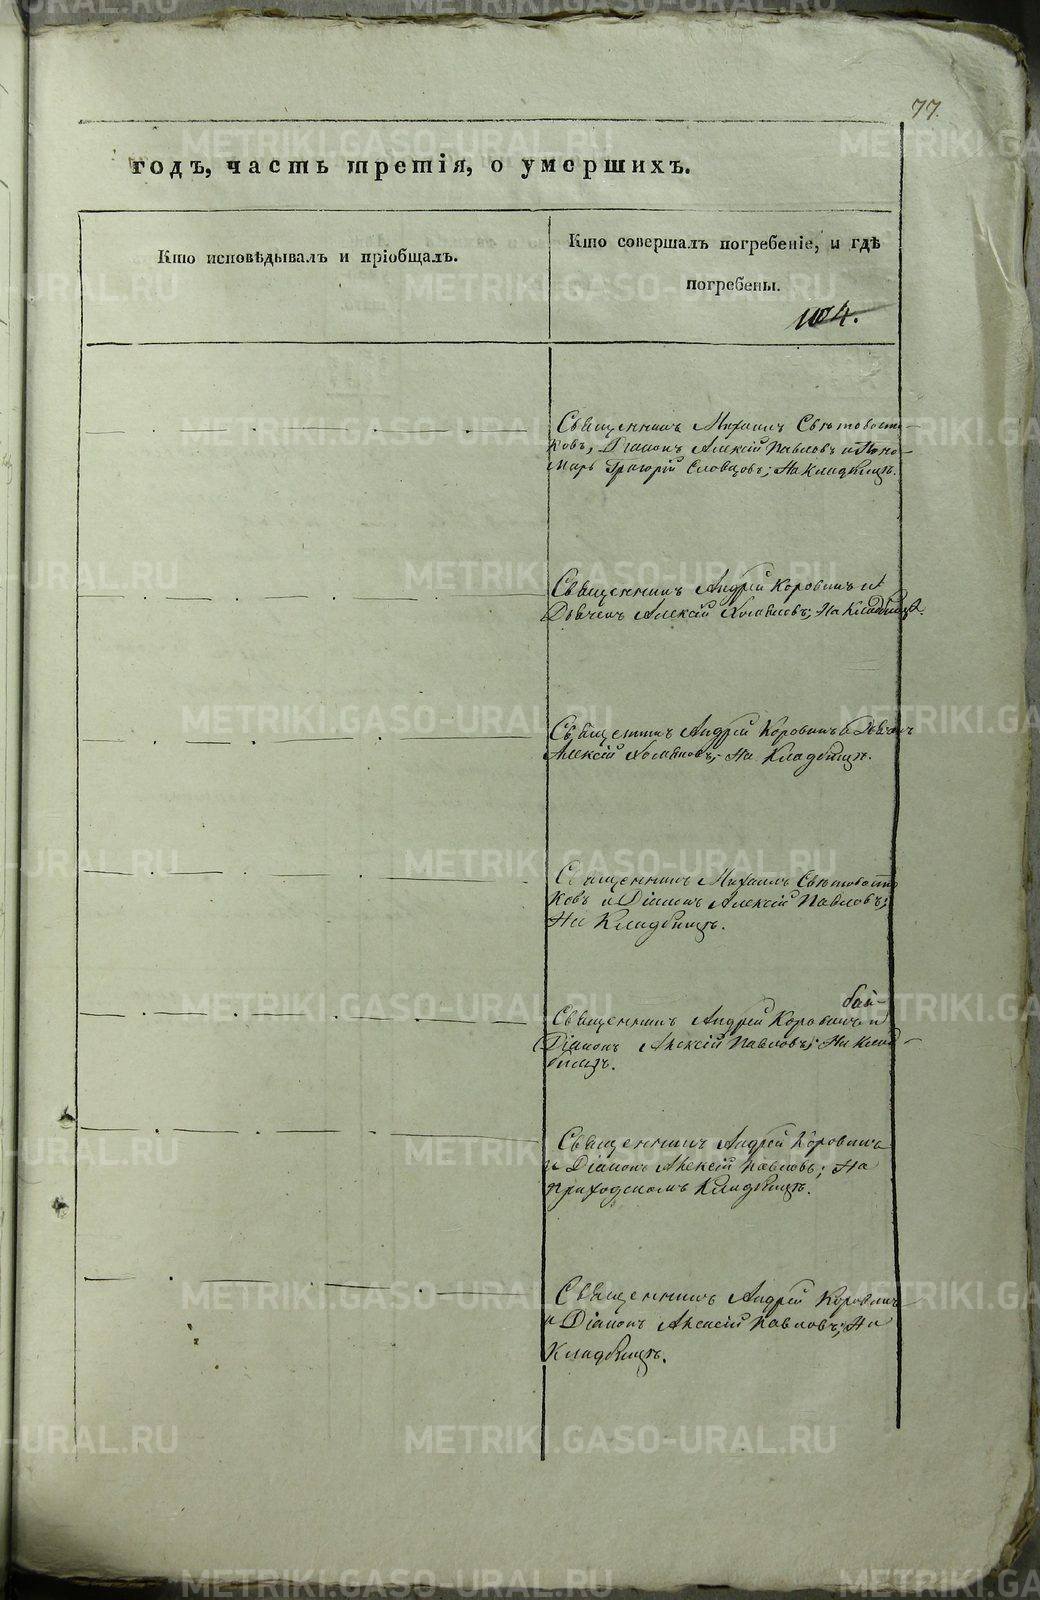 77.
годъ, часть третія, о умершихъ.
Кто исповѣдывалъ и пріобщалъ.
Кто совершалъ погребеніе, и гдѣ
погребены.
104.
Священникъ Михаилъ Свѣтовосто-
ковъ, Діаконъ Алексій Павловъ и Поно-
марь Григорій Словцовъ; На кладбищѣ.
Священникъ Андрей Коровинъ и
Дьячекъ Алексій Холмяковъ; На Кладбищѣ.
Священникъ Андрей Коровинъ и Дьячекъ
Алексій Холмяковъ; На Кладбищѣ.
Священникъ Михаилъ Свѣтовосто
ковъ и Діаконъ Алексій Павловъ;
На Кладбищѣ.
Священникъ Андрей Коровинъ и
Діаконъ Алексій Павловъ; На Клад-
бищѣ.
Священникъ Андрей Коровинъ
и Діаконъ Алексій Павловъ; На
приходскомъ Кладбищѣ.
Священникъ Андрей Коровинъ
и Діаконъ Алексій Павловъ; На
Кладбищѣ.
METRIKI.GASO-URAL.RU